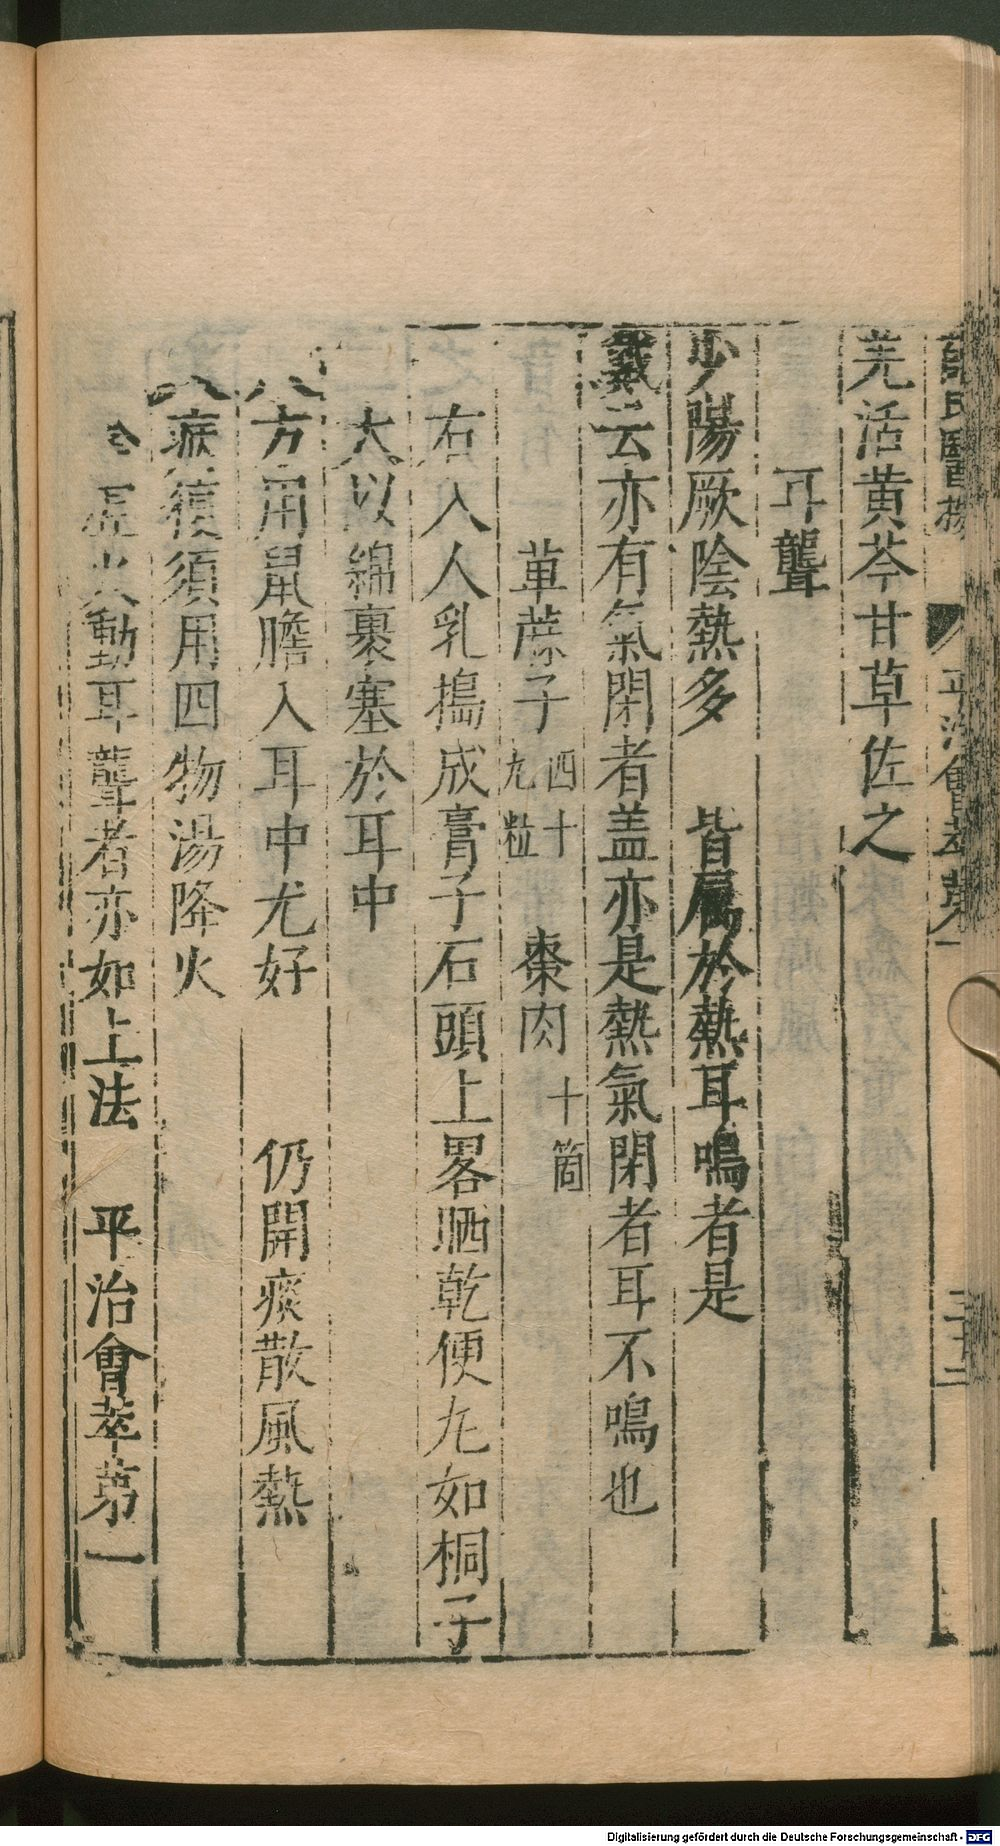 薛氏醫按 平治會萃第一 三十二
羌活黄芩甘草佐之
耳聾
少陽厥陰熱多 皆属於熱耳鳴者是
戴云亦有氣閉者盖亦是熱氣閉者耳不鳴也
萆蔴子四十九粒 棗肉十箇
右入人乳搗成膏子石頭上畧晒乾便丸如桐子
大以綿裹塞於耳中
方用鼠膽入耳中尤好 仍開痰散風熱
大病後須用四物湯降火
火動耳聾者亦如上法 平治會萃第一
Digitalisierung gefördert durch die Deutsche Forschungsgemeinschaft - DFG